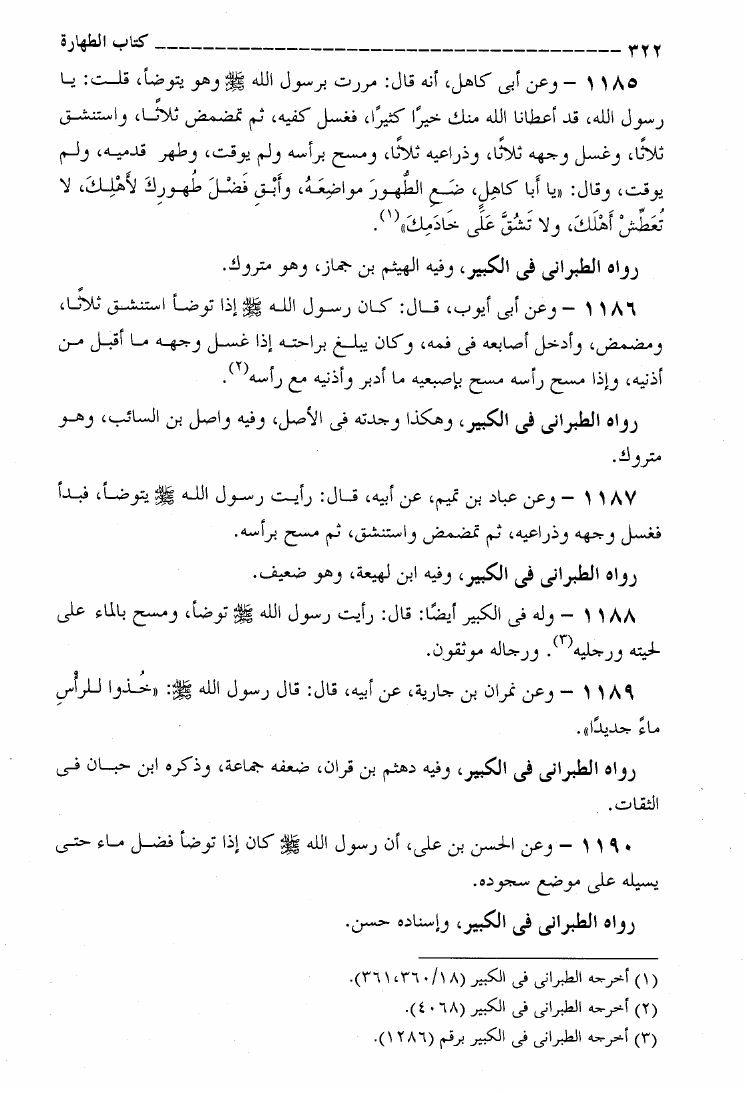 ٣٢٢ ــــــــــــــــــــــــــــــــــــــــــــــــــــ كتاب الطهارة
١١٨٥ – وعن أبى كاهل، أنه قال: مررت برسول الله ﷺ وهو يتوضأ، قلت: يا
رسول الله، قد أعطانا الله منك خيرًا كثيرًا، فغسل كفيه، ثم تمضمض ثلاثًا، واستنشق
ثلاثًا، وغسل وجهه ثلاثًا، وذراعيه ثلاثًا، ومسح برأسه ولم يوقت، وطهر قدميه، ولم
يوقت، وقال: «يا أبا كاهلٍ، ضَعِ الطُّهورَ مواضِعَهُ، وأَبْقِ فَضْلَ طُهورِكَ لأَهْلِكَ، لا
تُعَطِّشْ أَهْلَكَ، ولا تَشُقَّ عَلَى خَادَمِكَ»(١).
رواه الطبرانى فى الكبير، وفيه الهيثم بن جماز، وهو متروك.
١١٨٦ – وعن أبى أيوب، قال: كان رسول الله ﷺ إذا توضأ استنشق ثلاثًا،
ومضمض، وأدخل أصابعه فى فمه، وكان يبلغ براحته إذا غسل وجهه ما أقبل من
أذنيه، وإذا مسح رأسه مسح بإصبعيه ما أدبر وأذنيه مع رأسه(٢).
رواه الطبرانى فى الكبير، وهكذا وجدته فى الأصل، وفيه واصل بن السائب، وهو
متروك.
١١٨٧ – وعن عباد بن تميم، عن أبيه، قال: رأيت رسول الله ﷺ يتوضأ، فبدأ
فغسل وجهه وذراعيه، ثم تمضمض واستنشق، ثم مسح برأسه.
رواه الطبرانى فى الكبير، وفيه ابن لهيعة، وهو ضعيف.
١١٨٨ – وله فى الكبير أيضًا: قال: رأيت رسول الله ﷺ توضأ، ومسح بالماء على
لحيته ورجليه(٣). ورجاله موثقون.
١١٨٩ – وعن نمران بن جارية، عن أبيه، قال: قال رسول الله ﷺ: «خُذوا للرأْسِ
ماءً جديدًا».
رواه الطبرانى فى الكبير، وفيه دهثم بن قران، ضعفه جماعة، وذكره ابن حبان فى
الثقات.
١١٩٠ – وعن الحسن بن على، أن رسول الله ﷺ كان إذا توضأ فضل ماء حتى
يسيله على موضع سجوده.
رواه الطبرانى فى الكبير، وإسناده حسن.
(١) أخرجه الطبرانى فى الكبير (٣٦١،٣٦٠/١٨).
(٢) أخرجه الطبرانى فى الكبير (٤٠٦٨).
(٣) أخرجه الطبرانى فى الكبير برقم (١٢٨٦).